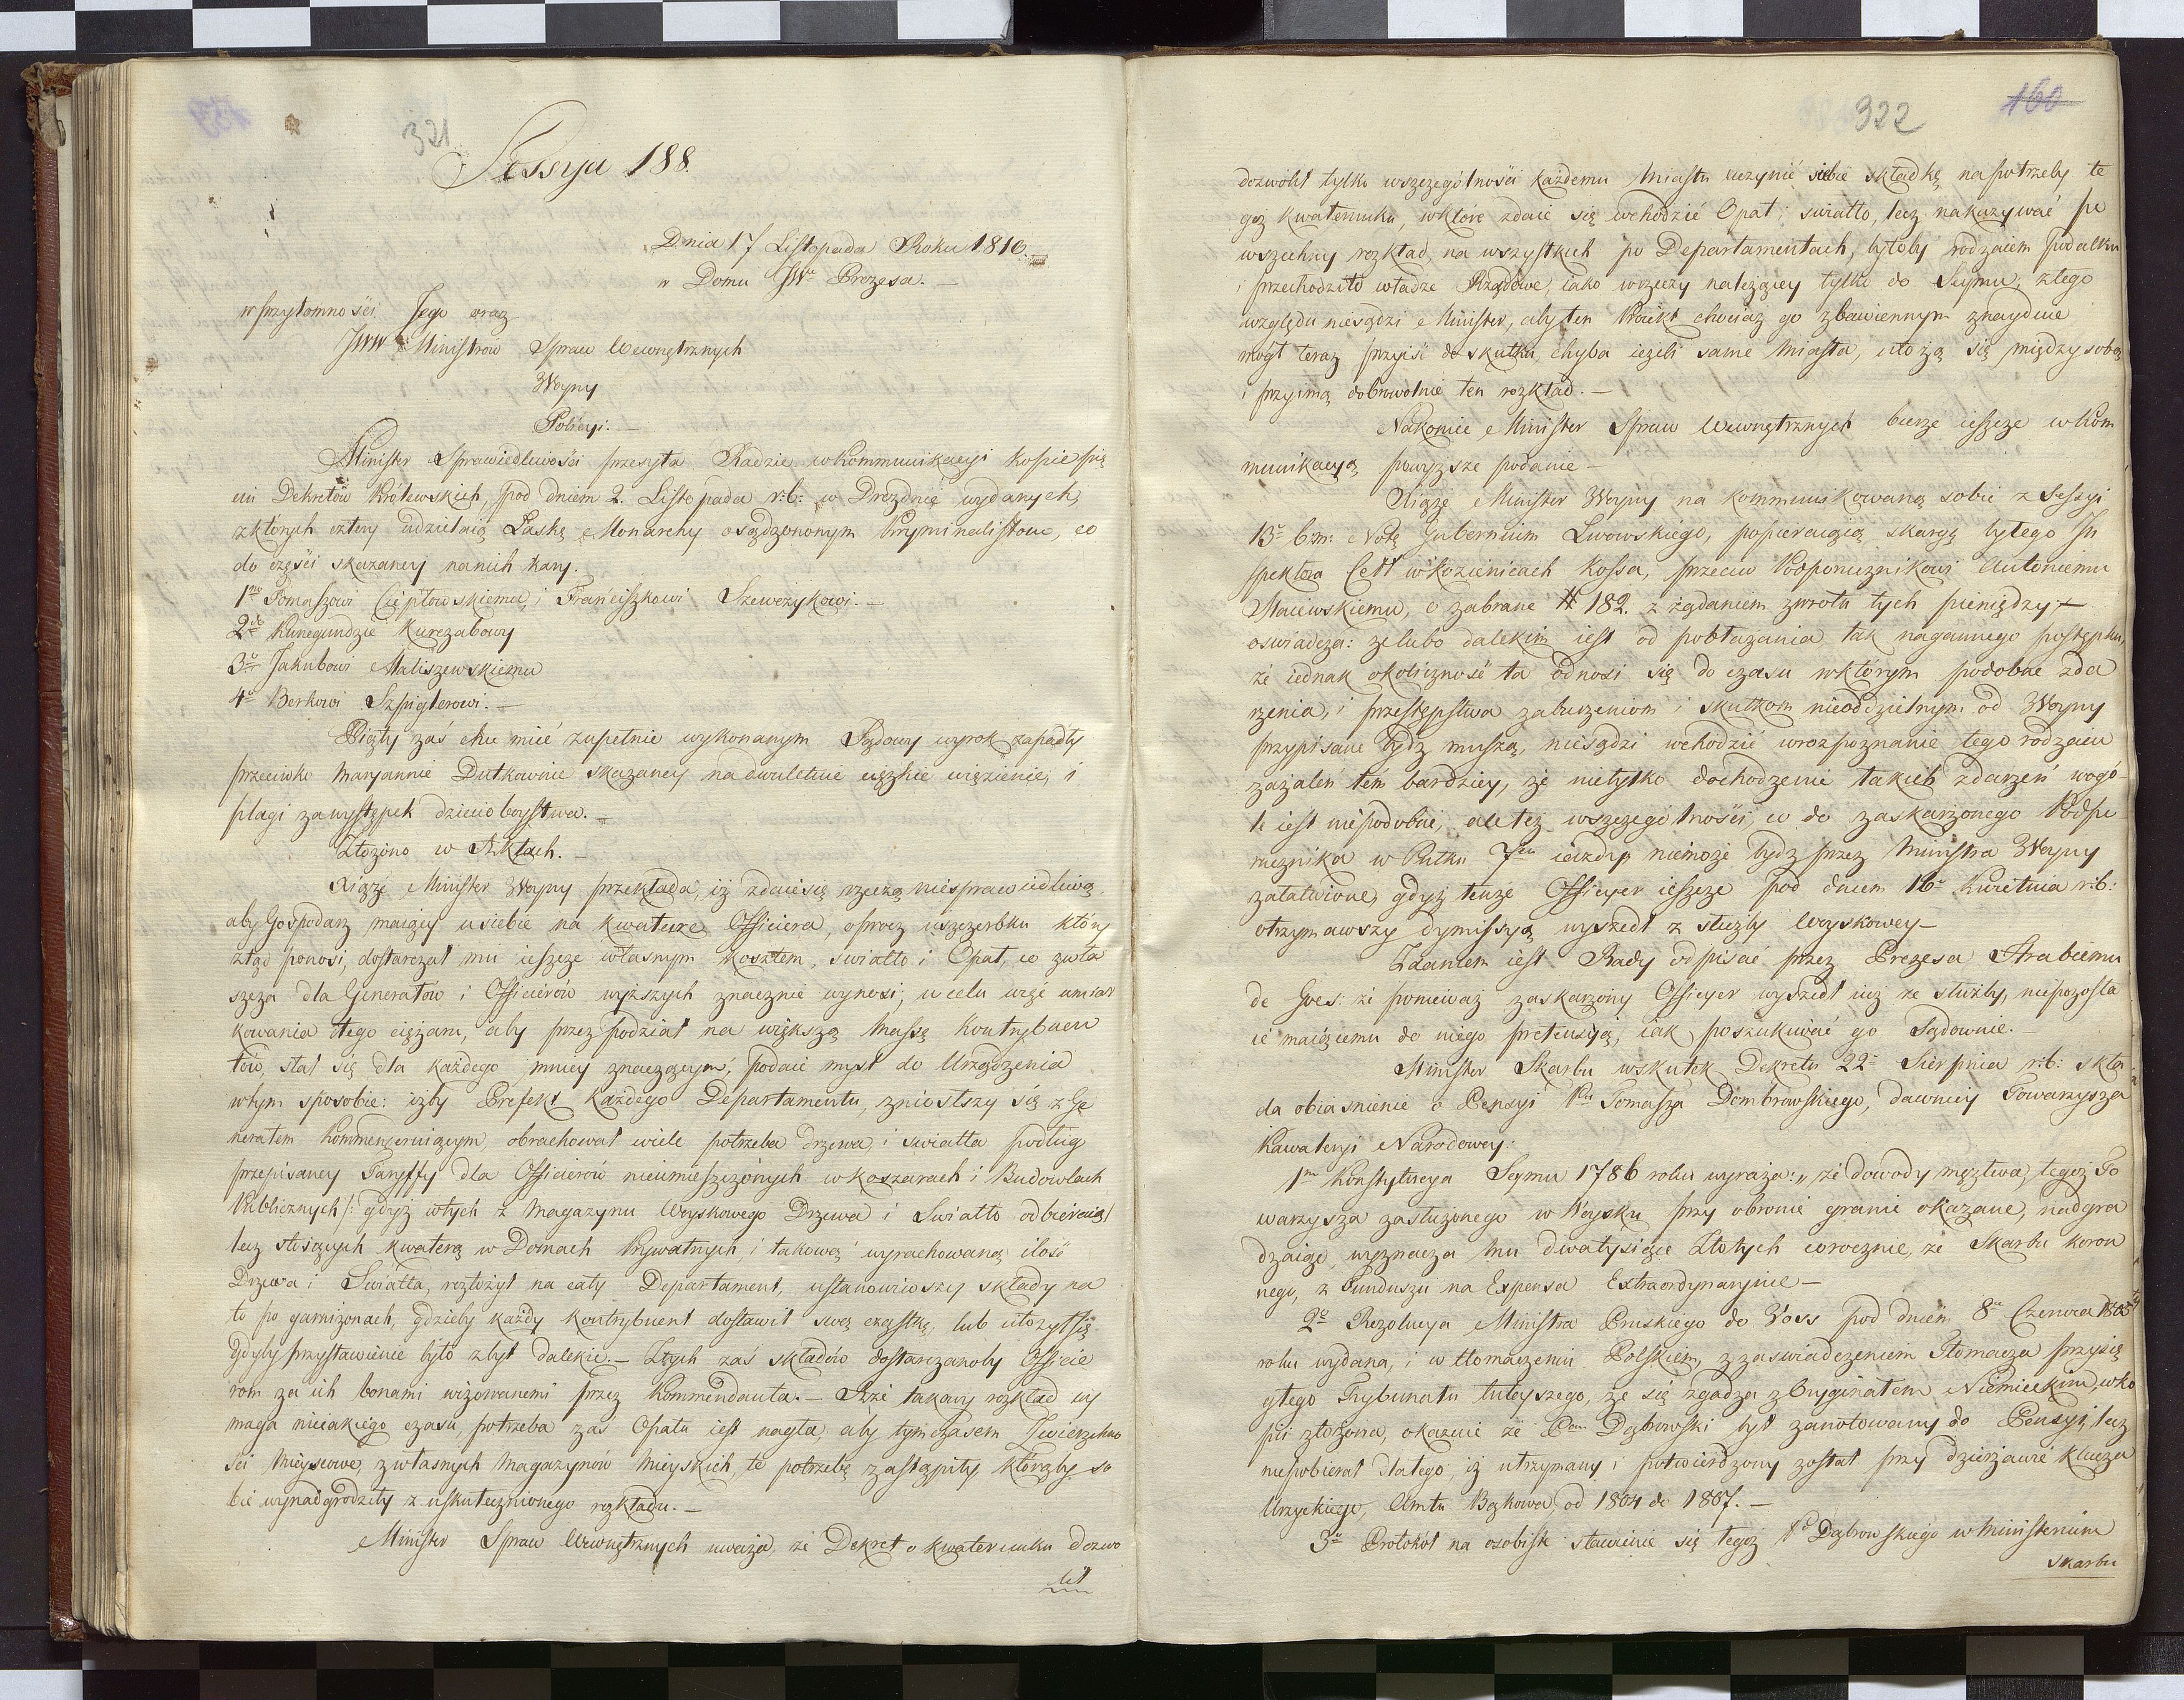 321
Sessyja 188.
Dnia 17 Listopada Roku 1810.
w Domu JWo Prezesa. —
w przytomności Jego oraz
JWW Ministrów Spraw Wewnętrznych
Woyny
Policyi. —
Minister Sprawiedliwości przesyła Radzie w kommunikacyi kopie pię
ciu Dekretów Królewskich, pod dniem 2. Listopada r:b: w Dreznie wydanych,
z których cztery udzielaią Łaskę Monarchy osądzononym kryminalistom, co
do części skazaney na nich kary.
1mo Tomaszowi Cieplowskiemu, i Franciszkowi Szewczykowi. —
2do Kunegundzie Kurczabowy
3o Jakubowi Maliszewskiemu
4o Berkowi Szpiglerowi. —
Piąty zaś chce mieć zupełnie wykonanym Sądowy wyrok zapadły
przeciwko Maryannie Dutkownie skazaney na dwuletnie ciężkie więzienie, i
plagi za występek dzieciobóystwa. —
Złożono w Aktach. —
Xiąże Minister Woyny przekłada, iż zdaie się rzeczą niesprawiedliwą
aby Gospodarz maiący u siebie na kwaterze Officiera, oprocz uszczerbku który
ztąd ponosi, dostarczał mu ieszcze własnym kosztem, swiatło i Opał, co zwła
szcza dla Generałów i Officierów wyższych znacznie wynosi; w celu więc umiar
kowania tego ciężaru, aby przez podział na większą massę kontrybuen
tów, stał się dla każdego mniey znaczącym, podaie myśl do Urządzenia
w tym sposobie: iżby Prefekt każdego Departamentu, zniosłszy się z Ge
nerałem kommenderuiącym, obrachował wiele potrzeba drzewa i swiatła podług
przepisaney Taryffy dla Officierów nieumieszczonych w koszarach i Budowlach
Publicznych /: gdyż w tych z Magazynu Woyskowego Drzewa i Swiatło odbieraią/
lecz stoiących kwaterą w Domach Prywatnych i takową wyrachowaną ilość
Drzewa i Swiatła, rozłożył na cały Departament, ustanowiwszy składy na
to po garnizonach, gdzieby każdy kontrybuent dostawił swą cząstkę, lub ułożył się
gdyby przystawienie było zbyt dalekie. — Z tych zaś składów dostarczanoby Officie
rom za ich bonami wizowanemi przez Kommendanta. — A że takowy rozkład wy
maga nieiakiego czasu, potrzeba zaś Opału iest nagła, aby tymczasem Zwierzchno
ści Mieyscowe, z własnych Magazynów Mieyskich, te potrzebę zastąpiły którąby so
bie wynadgrodziły z uskutecznionego rozkładu. —
Minister Spraw Wewnętrznych uważa, że Dekret o kwaterunku dozwo
lił
322
160
dozwolił tylko wszczególności każdemu Miastu uczynić siebie składkę na potrzeby te
goż kwaterunku, w które zdaie się wchodzić Opał i swiatło, lecz nakazywać po
wszechny rozkład, na wszystkich po Departamentach, byłoby rodzaiem podatku
i przechodziło władze Rządowe, iako w rzeczy należącey tylko do Seymu, z tego
względu niesądzi Minister, aby ten Proiekt chociaż go zbawiennym znayduie
mógł teraz przyiść do skutku, chyba ieżeli same Miasta, ułożą się między sobą
i przyimą dobrowolnie ten rozkład. —
Nakoniec Minister Spraw Wewnętrznych bierze ieszcze w kom
munikacyą powyższe podanie —
Xiąże Minister Woyny na kommunikowaną sobie z Sessyi
13o b:m: Notę Gubernium Lwowskiego, popieraiącą skargę byłego In
spektora Ceł w Kozienicach Kossa, przeciw Podporucznikowi Antoniemu
Maiewskiemu, o zabrane # 182. z żądaniem zwrotu tych pieniędzy +
oswiadcza: że lubo dalekim iest od pobłażania tak nagannego postępku,
że iednak okoliczność ta odnosi się do czasu w którym podobne zda
rzenia, i przestępstwa zaburzeniom i skutkom nieoddzielnym od Woyny
przypisane bydź muszą, niesądzi wchodzić w rozpoznanie tego rodzaiu
zażaleń tem bardziey, że nietylko dochodzenie takich zdarzeń wogó
le iest niepodobne, ale też wszczególności, co do zaskarżonego Podpo
rucznika w Pułku 7m iazdy, niemoże bydź przez Ministra Woyny
załatwione, gdyż tenże Officyer ieszcze pod dniem 16o Kwietnia r:b:
otrzymawszy dymissyą wyszedł z służby Woyskowey —
Zdaniem iest Rady odpisać przez Prezesa Hrabiemu
de Goes: że ponieważ zaskarżony Officyer wyszedł iuż ze służby, niepozosta
ie maiącemu do niego pretensyą, iak poszukiwać go Sądownie. —
Minister Skarbu wskutek Dekretu 22o Sierpnia r:b: skła
da obiaśnienie o Pensyi Pa Tomasza Dombrowskiego, dawniey Towarzysza
Kawaleryi Narodowey:
1mo Konstytucya Seymu 1786 roku wyraża: „ że dowody męztwa, tegoż To
warzysza zasłużonego w Woysku przy obronie granic okazane, nadgra
dzaiąc wyznacza mu dwatysiące Złotych corocznie, ze Skarbu koron
nego, z Funduszu na Expensa Extraordynaryine —
2o Rezolucya Ministra Pruskiego de Voss pod dniem 8o Czerwca 1805
roku wydana, i w tłomaczeniu Polskiem, z zaswiadczeniem Tłomacza przysię
głego Trybunału tuteyszego, że się zgadza z Oryginałem Niemieckim, w ko
pii złożona, okazuie że Pan Dąbrowski był zanotowany do Pensyi, lecz
niepobierał dlatego, iż utrzymany i potwierdzony został przy dzierżawie klucza
Urzyckiego, Amtu Bąkowa od 1804 do 1807. —
3o Protokół na osobiste stawienie się tegoż Pa Dąbrowskiego w Ministerium
Skarbu